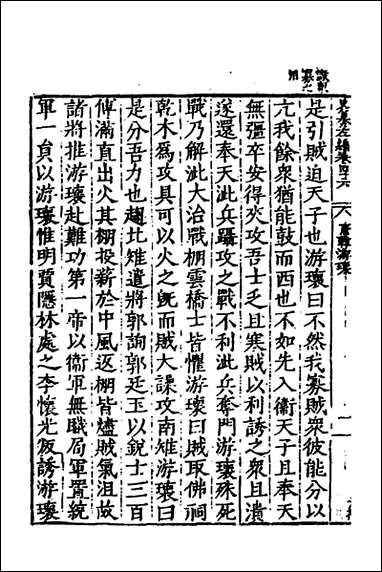 是引賊迫天子也游瓌曰不然我寡賊衆彼能分以
亢我餘衆猶能鼓而西也不如先入衞天子且奉天
無彊卒安得夾攻吾士乏且寒賊以利誘之衆且潰
遂還奉天泚兵躡攻之戰不利泚兵奪門游瓌殊死
戰乃解泚大治戰棚雲橋士皆懼游瓌曰賊取佛祠
乾木爲攻具可以火之旣而賊大譟攻南雉游瓌曰
是分吾力也趨北雉遣將郭詢郭廷玉以銳士三百
傅滿直出火其棚投薪於中風返棚皆燼賊氣沮故
諸將推游瓌赴難功第一帝以衞軍無職局軍置統
軍一員以游瓌惟明賈隱林處之李懷光叛誘游瓌